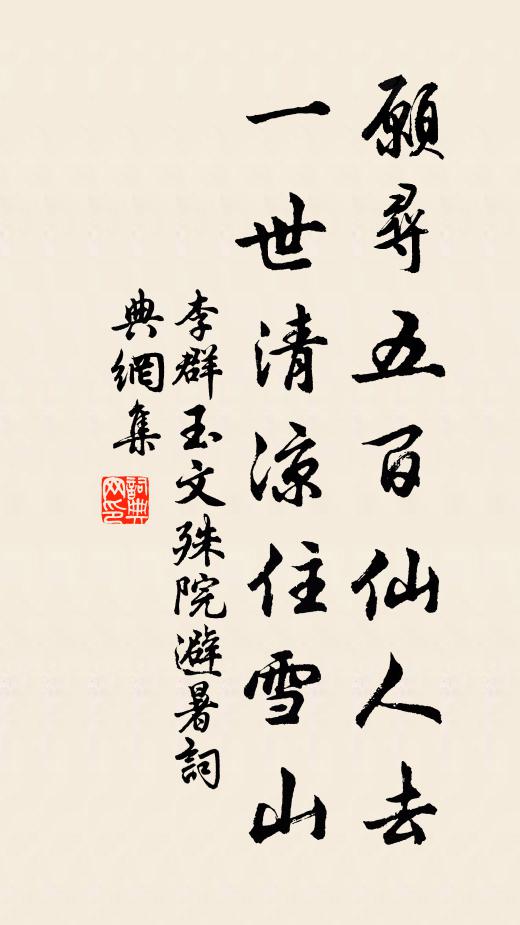 願尋五百仙人去
一世清涼住雪山
李群玉文殊院避暑詞
典網集
詞典網印